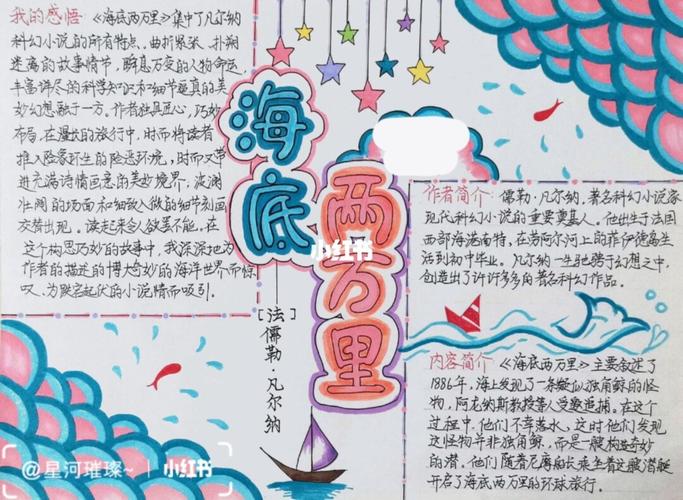 我的感悟:《海底两万里》集中了凡尔纳
科幻小说的所有特点。曲折紧张、扑朔
迷离的故事情节,瞬息万变的人物命运,
丰富详尽的科学知识和细节逼真的美
妙幻想融于一方。作者独具匠心,巧妙
布局,在漫长的旅行中,时而将读者
推入险象环生的险恶环境,时而又带
进充满诗情画意的美妙境界,波澜
壮阔的场面和细致入微的细节刻画
交替出现。读起来令人欲罢不能。在
这个构思巧妙的故事中,我深深地为
作者的描述的博大奇妙的海洋世界而惊
叹,为跌宕起伏的小说情而吸引。
海底
两万里
小红书
[法]儒勒·凡尔纳
作者简介:儒勒·凡尔纳,著名科幻小说家
现代科幻小说的重要奠基人。他出生于法国
西部海港南特,在劳阿尔河上的菲伊德岛生
活到初中毕业。凡尔纳一生驰骋于幻想之中,
创造出了许许多多的著名科幻作品。
内容简介:《海底两万里》主要叙述了
1886年,海上发现了一条疑似独角鲸的怪
物,阿龙纳斯教授等人受邀追捕。在这个
过程中,他们不幸落水,这时他们发现
这怪物并非独角鲸,而是一艘构造奇妙
的潜。他们随着尼摩船长乘坐着这艘潜艇
开启了海底两万里的环球旅行。
@星河璀璨~ 小红书